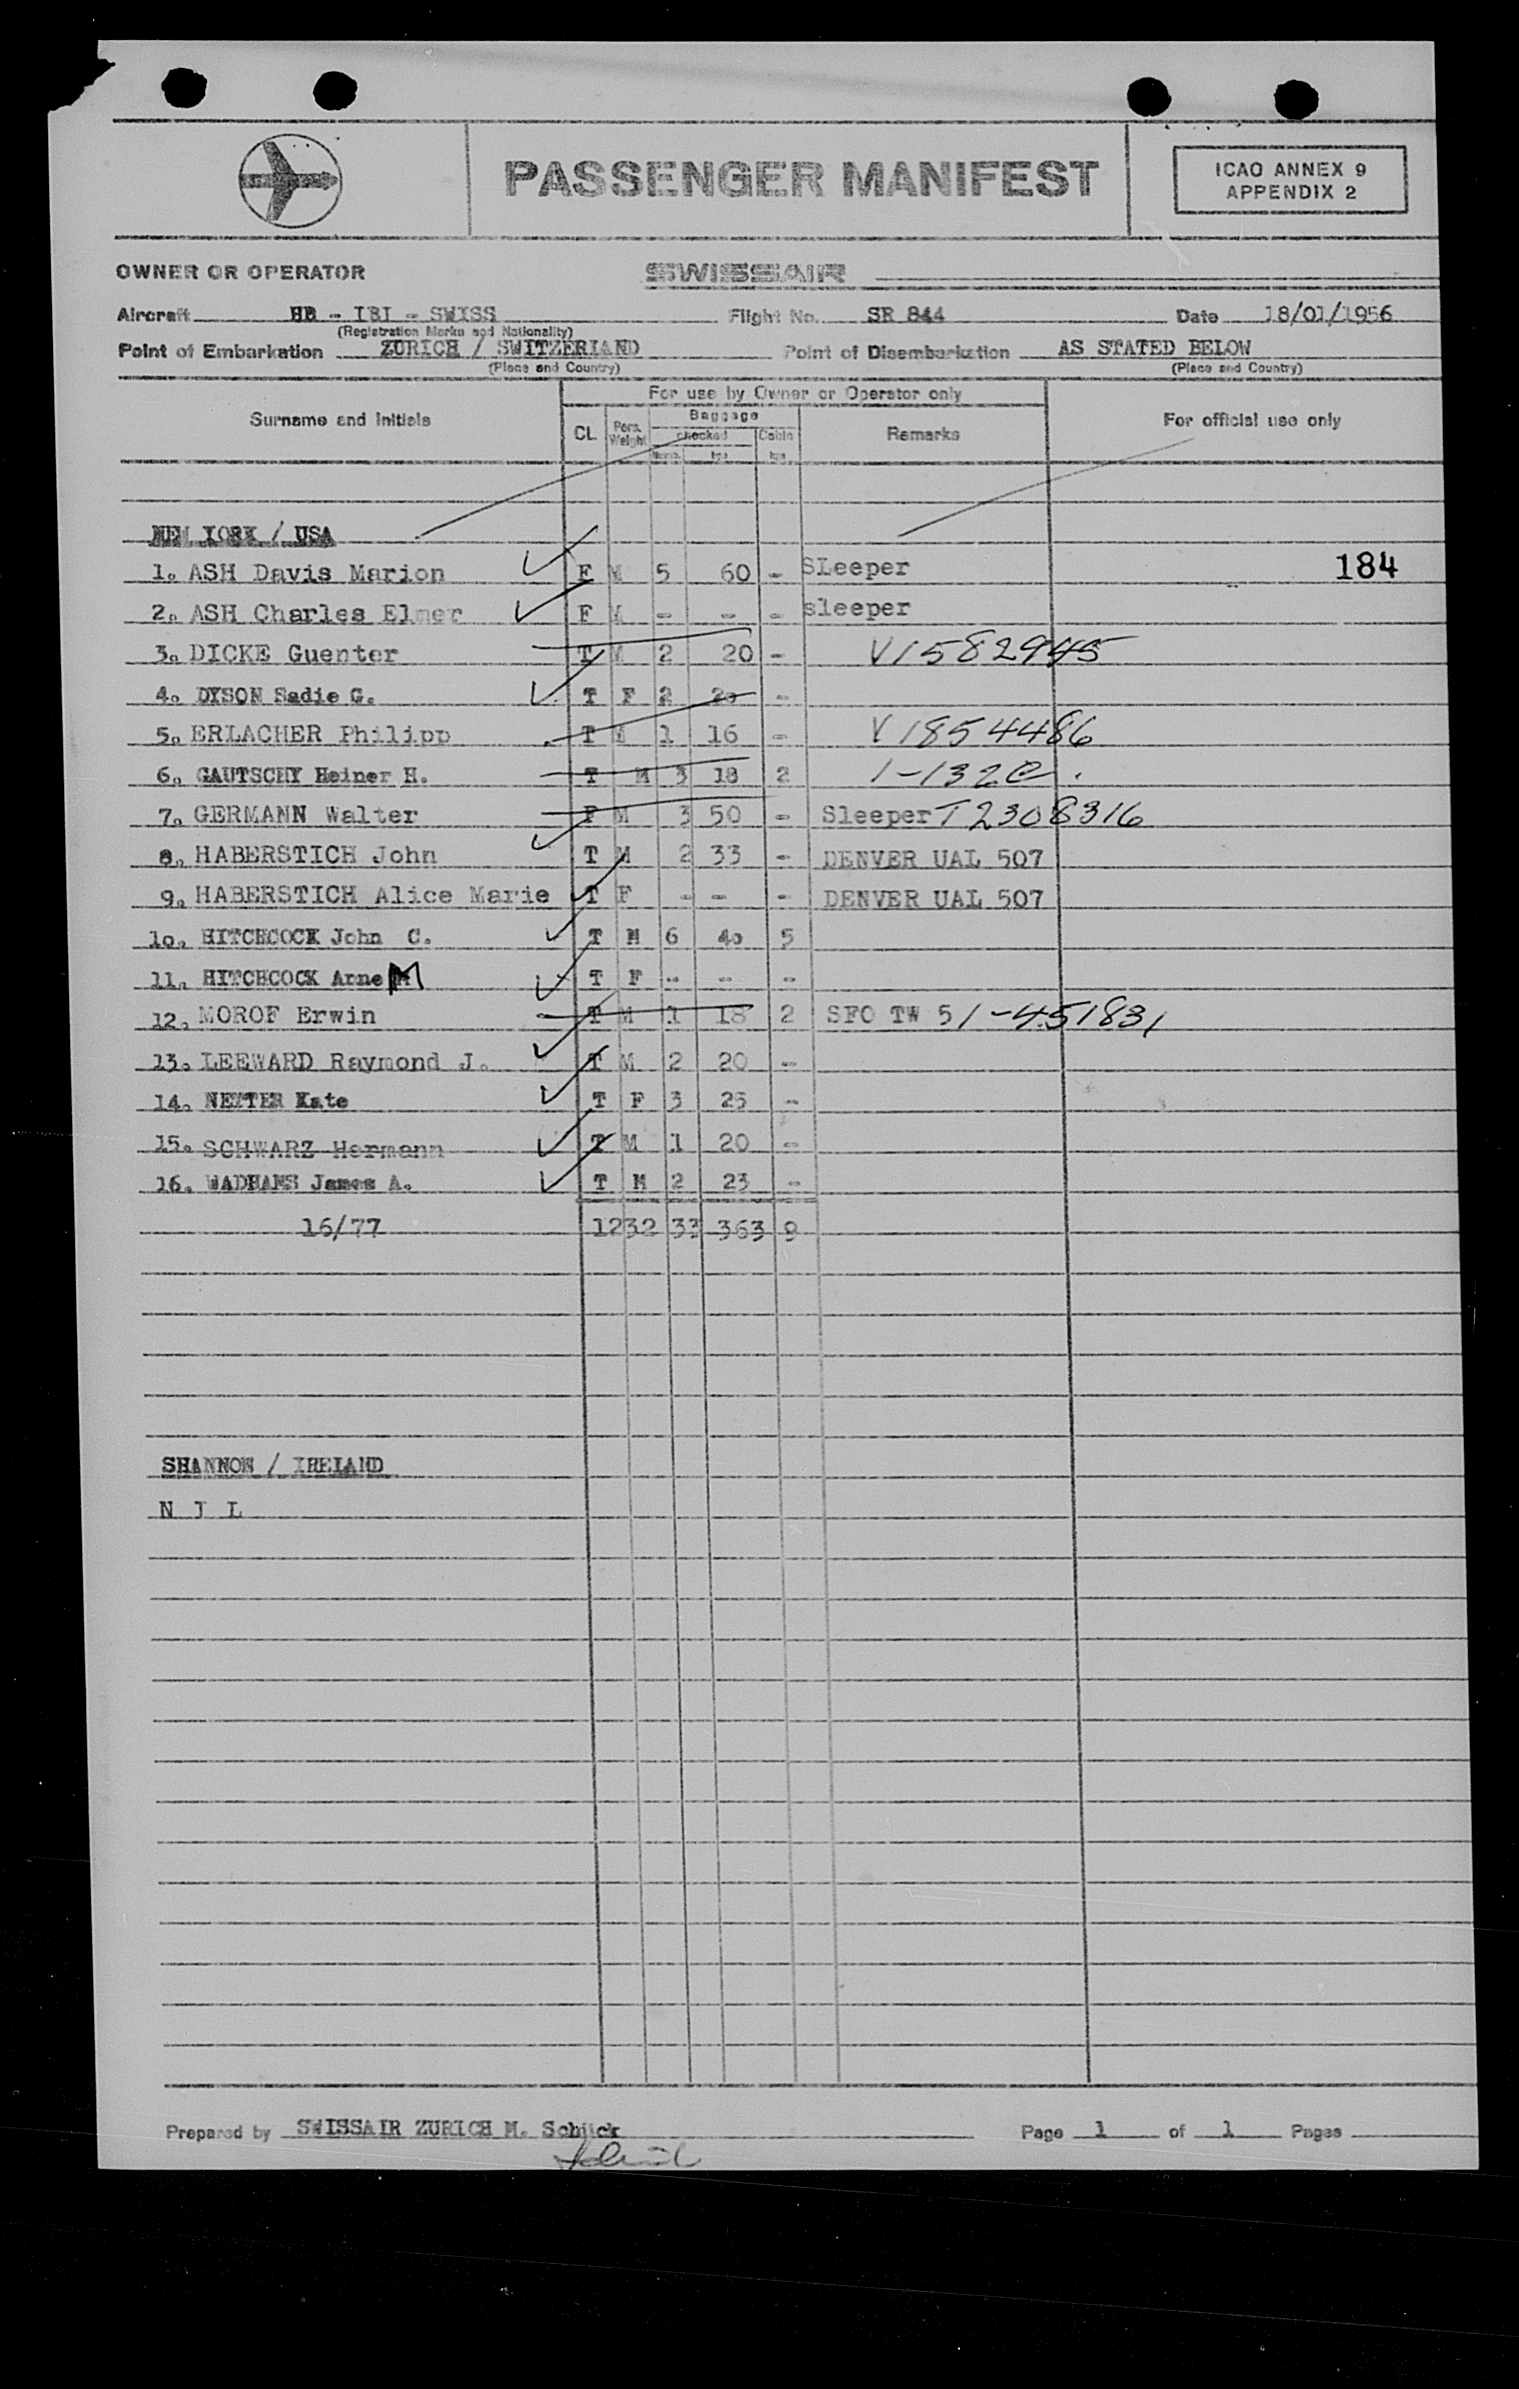 PASSENGER MANIFEST
ICAO ANNEX 9
APPENDIX 2
OWNER OR OPERATOR SWISSAIR
Aircraft HB - IBI - SWISS Flight No. SR 844 Date 18/01/1956
(Registration Marks and Nationality)
Point of Embarkation ZURICH / SWITZERLAND Point of Disembarkation AS STATED BELOW
(Place and Country) (Place and Country)
For use by Owner or Operator only
Surname and Initials CL. Pers. Weight Baggage checked Numb. kgs Cabin kgs Remarks For official use only
NEW YORK / USA
1. ASH Davis Marion F M 5 60 - SLeeper 184
2. ASH Charles Elmer F M - - - sleeper
3. DICKE Guenter T M 2 20 - V1582945
4. DYSON Sadie G. T F 2 20 -
5. ERLACHER Philipp T M 1 16 - V1854486
6. GAUTSCHY Heiner H. T M 3 18 2 1-132
7. GERMANN Walter F M 3 50 - Sleeper T2308316
8. HABERSTICH John T M 2 33 - DENVER UAL 507
9. HABERSTICH Alice Marie T F - - - DENVER UAL 507
10. HITCHCOCK John C. T M 6 40 5
11. HITCHCOCK Anne M T F - - -
12. MOROF Erwin T M 1 18 2 SFO TW 5 1-451831
13. LEEWARD Raymond J. T M 2 20 -
14. NETTER Kate T F 3 25 -
15. SCHWARZ Hermann T M 1 20 -
16. WADHAMS James A. T M 2 23 -
16/77 1232 33 363 9
SHANNON / IRELAND
N I L
Prepared by SWISSAIR ZURICH M. Schück Page 1 of 1 Pages